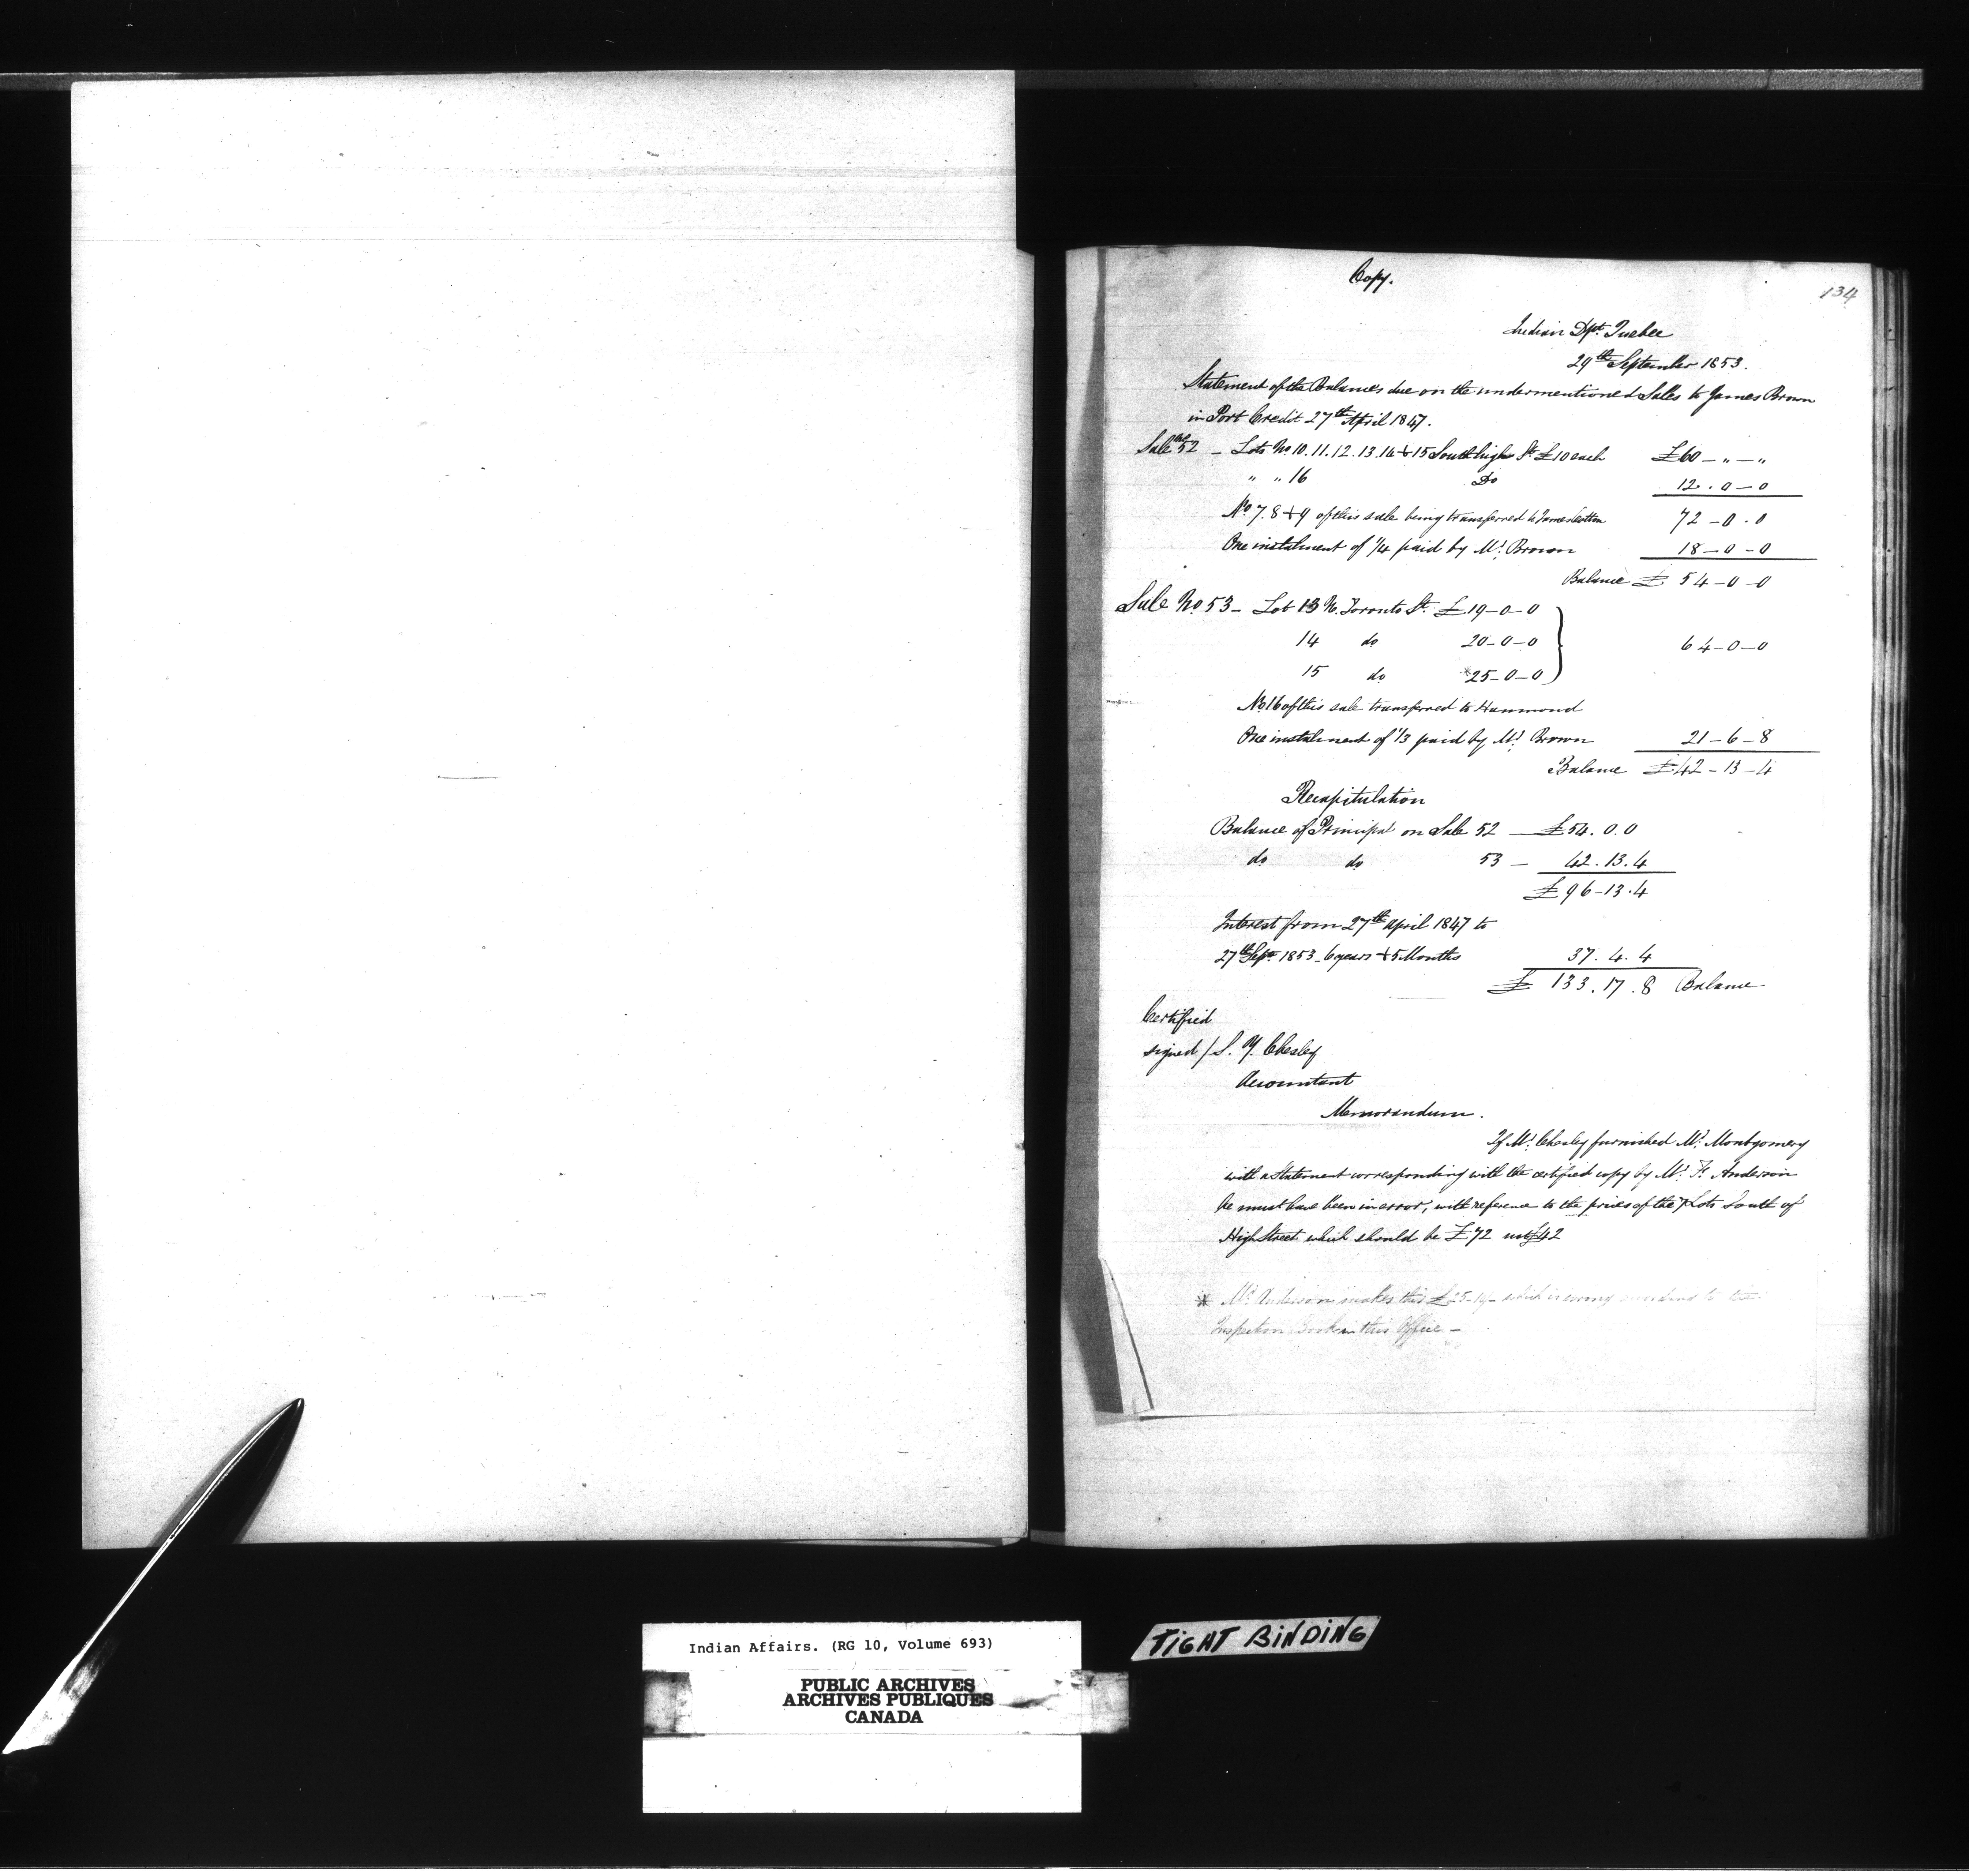 Copy.
134
Indian Dpt. Quebec
29th September 1853.
Statement of the Balances due on the undermentioned Sales to James Brown
in Port Credit 27th April 1847.
Sale No 52 – Lots No 10.11.12.13.14 + 15 South high St. £10 each £60 – " – "
" " 16 Do 12 . 0 – 0
No 7. 8 + 9 of this sale being transferred to James Cotton 72 – 0 . 0
One instalment of 1/4 paid by Mr. Brown 18 – 0 – 0
Balance £ 54 – 0 – 0
Sale No. 53 – Lot 13 N. Toronto St. £19 – 0 – 0
14 do 20 – 0 – 0 64 – 0 – 0
15 do *25 – 0 – 0
No 16 of this sale transferred to Hammond
One instalment of 1/3 paid by Mr. Brown 21 – 6 – 8
Balance £42 – 13 – 4
Recapitulation
Balance of Principal on Sale 52 — £54. 0. 0
do do 53 – 42 . 13. 4
£ 96 – 13 . 4
Interest from 27th April 1847 to
27th Sept. 1853 – 6 years + 5 Months 37. 4. 4
£ 133. 17. 8 Balance
Certified
signed / S. Y. Chesley
Accountant
Memorandum.
If Mr. Chesley furnished Mr. Montgomery
with a Statement corresponding with the certified copy by Mr. F. Anderson
he must have been in error, with reference to the prices of the 7 Lots South of
High Street which should be £72 not £42
* Mr. Anderson makes this £25-19 – which is wrong according to the
Inspection Book in this Office –
Indian Affairs. (RG 10, Volume 693)
PUBLIC ARCHIVES
ARCHIVES PUBLIQUES
CANADA
TIGHT BINDING